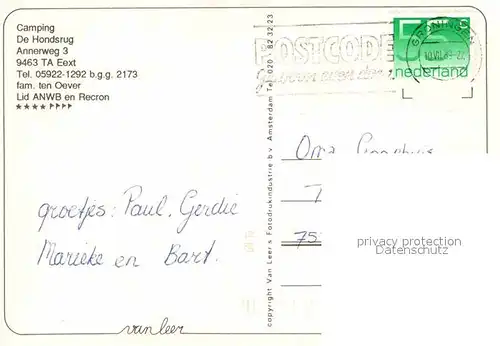 Camping
De Hondsrug
Annerweg 3
9463 TA Eext
Tel. 05922-1292 b.g.g. 2173
fam. ten Oever
Lid ANWB en Recron
groetjes: Paul, Gerdie
Marieke en Bart.
van leer
copyright Van Leer's Fotodrukindustrie b.v. Amsterdam Tel. 020 - 82 32 23
POSTCODE
GRONINGEN
55 c
nederland
Oma
75
privacy protection
Datenschutz